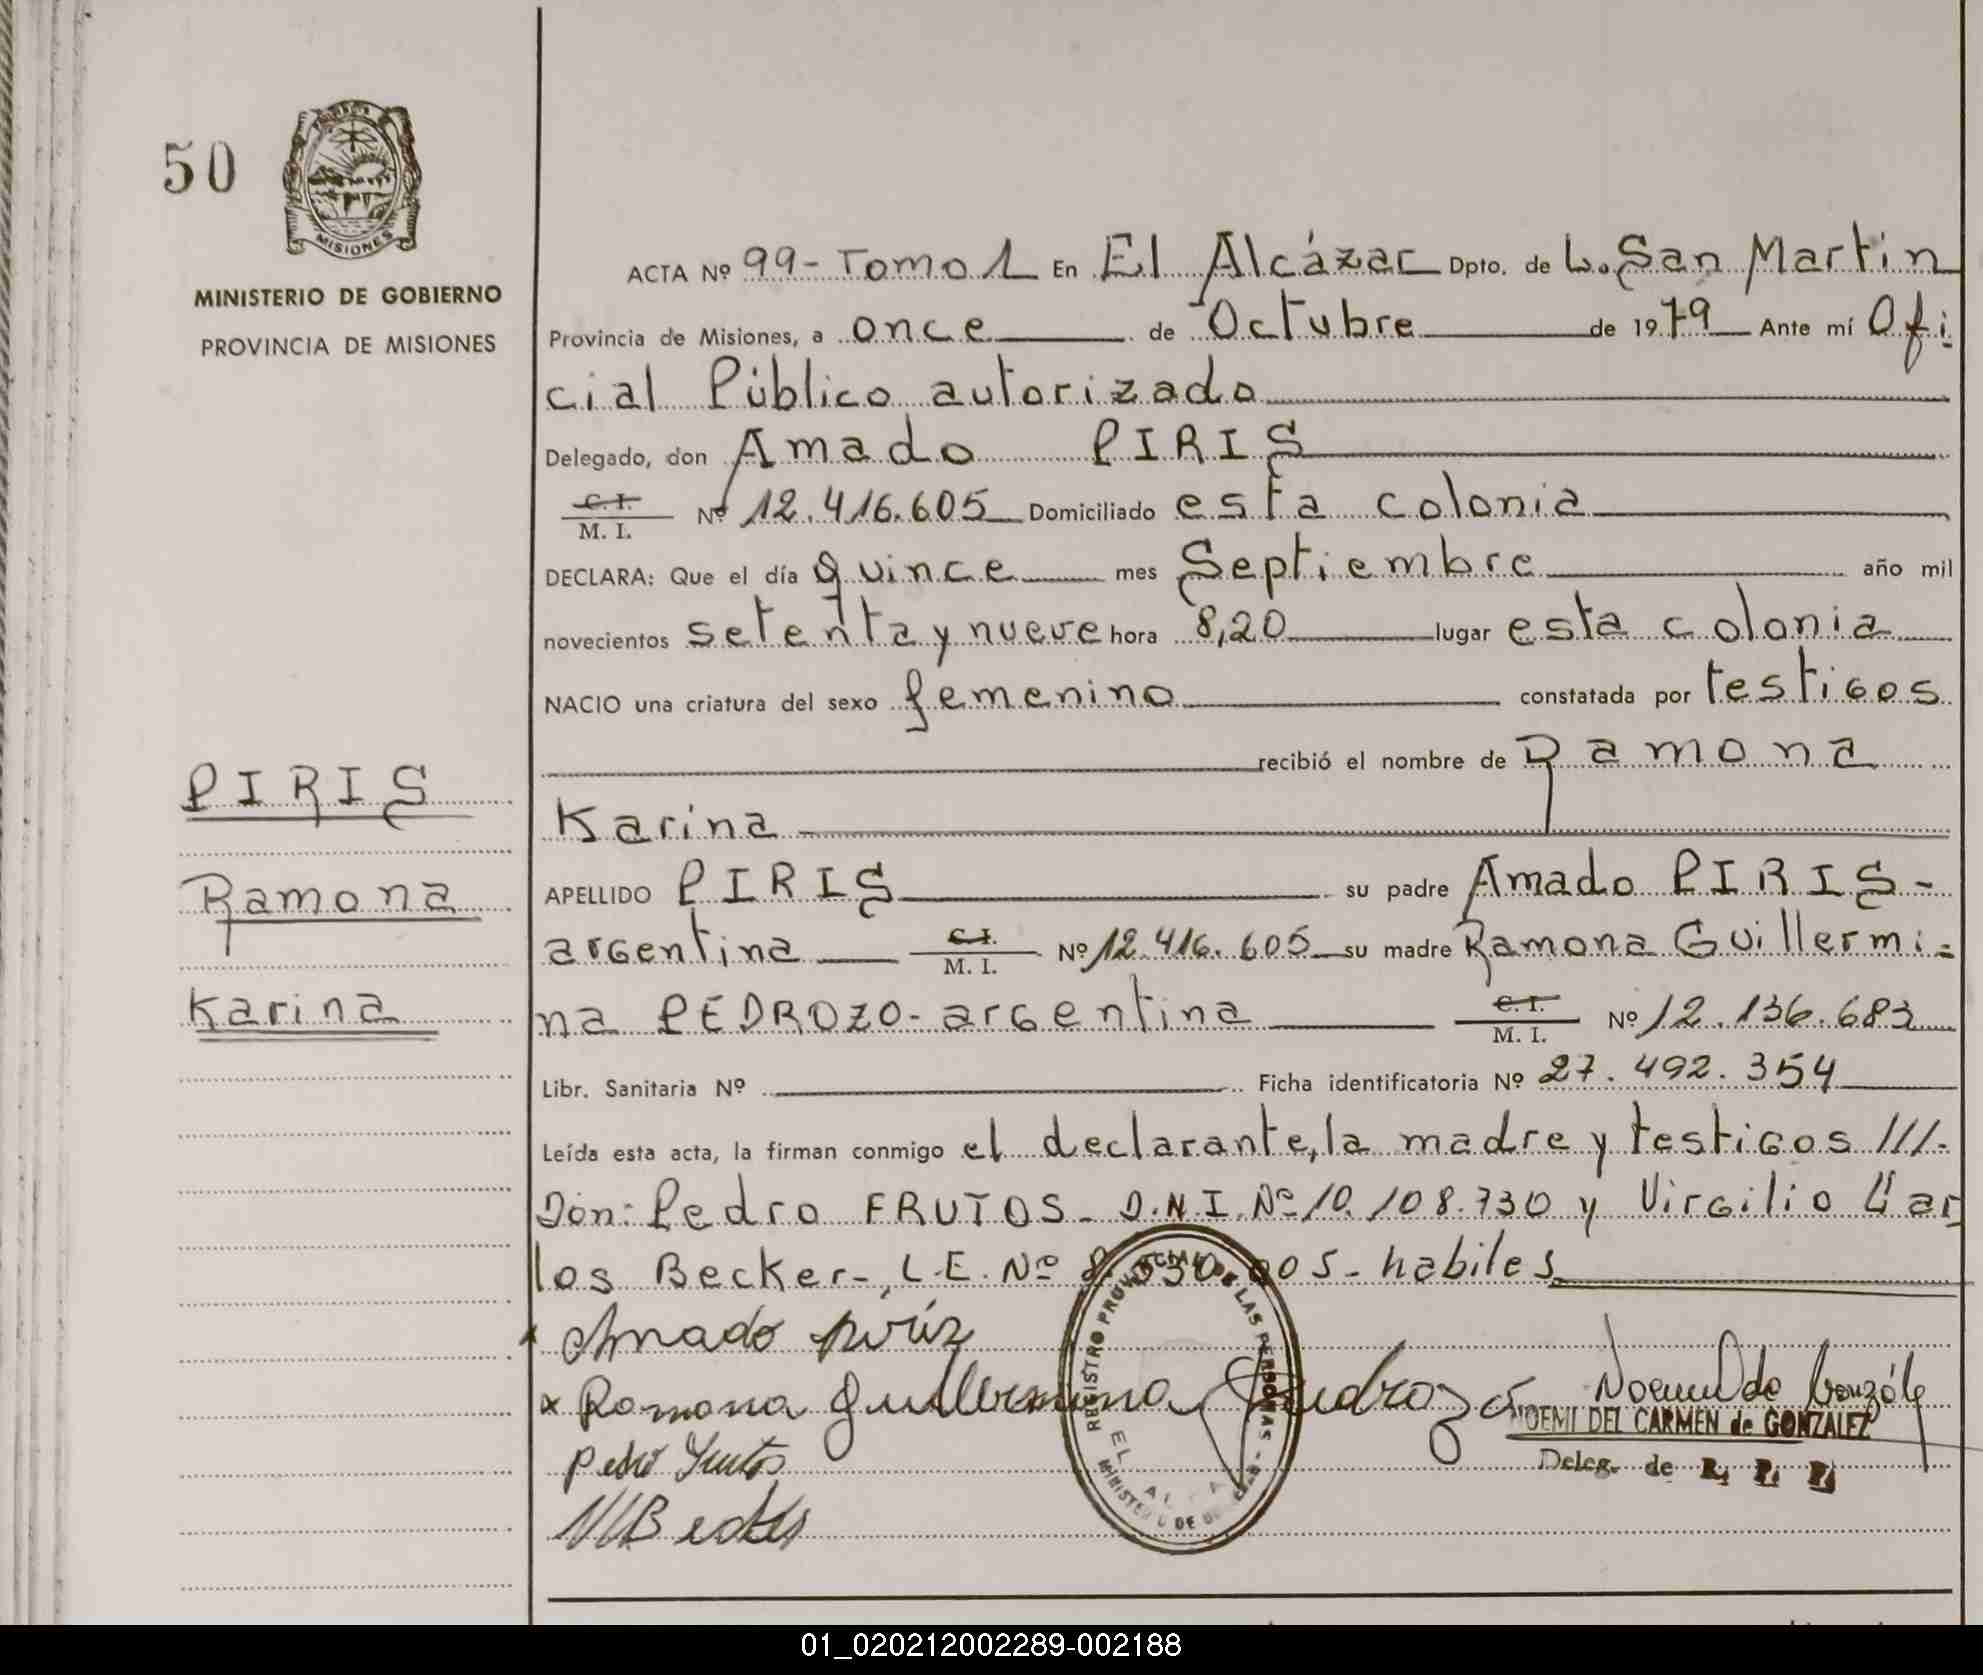 50
MISIONES
MINISTERIO DE GOBIERNO
PROVINCIA DE MISIONES
PIRIS
Ramona
Karina
ACTA Nº 99- Tomo 1 En El Alcázar Dpto. de L. San Martín
Provincia de Misiones, a once de Octubre de 1979 Ante mí Ofi
cial Público autorizado
Delegado, don Amado PIRIS
C.I.
M. I. Nº 12.416.605 Domiciliado esta colonia
DECLARA: Que el día quince mes Septiembre año mil
novecientos setenta y nueve hora 8,20 lugar esta colonia
NACIO una criatura del sexo femenino constatada por testigos
recibió el nombre de Ramona
Karina
APELLIDO PIRIS su padre Amado PIRIS-
argentina C.I. M. I. Nº 12.416.605 su madre Ramona Guillermi=
na PEDROZO- argentina C.I. M. I. Nº 12.136.683
Libr. Sanitaria Nº Ficha identificatoria Nº 27.492.354
Leída esta acta, la firman conmigo el declarante, la madre y testigos ///-
Don: Pedro FRUTOS- D.N.I. Nº 10.108.730 y Virgilio Car
los Becker-, L.E. Nº - habiles
x Amado piriz
x Ramona Guillermina Pedrozo
Pedro Frutos
REGISTRO PROVINCIAL DE LAS PERSONAS
MINISTERIO DE
EL
NOEMI DEL CARMEN de GONZALEZ
Deleg. de R. P. P.
01_020212002289-002188